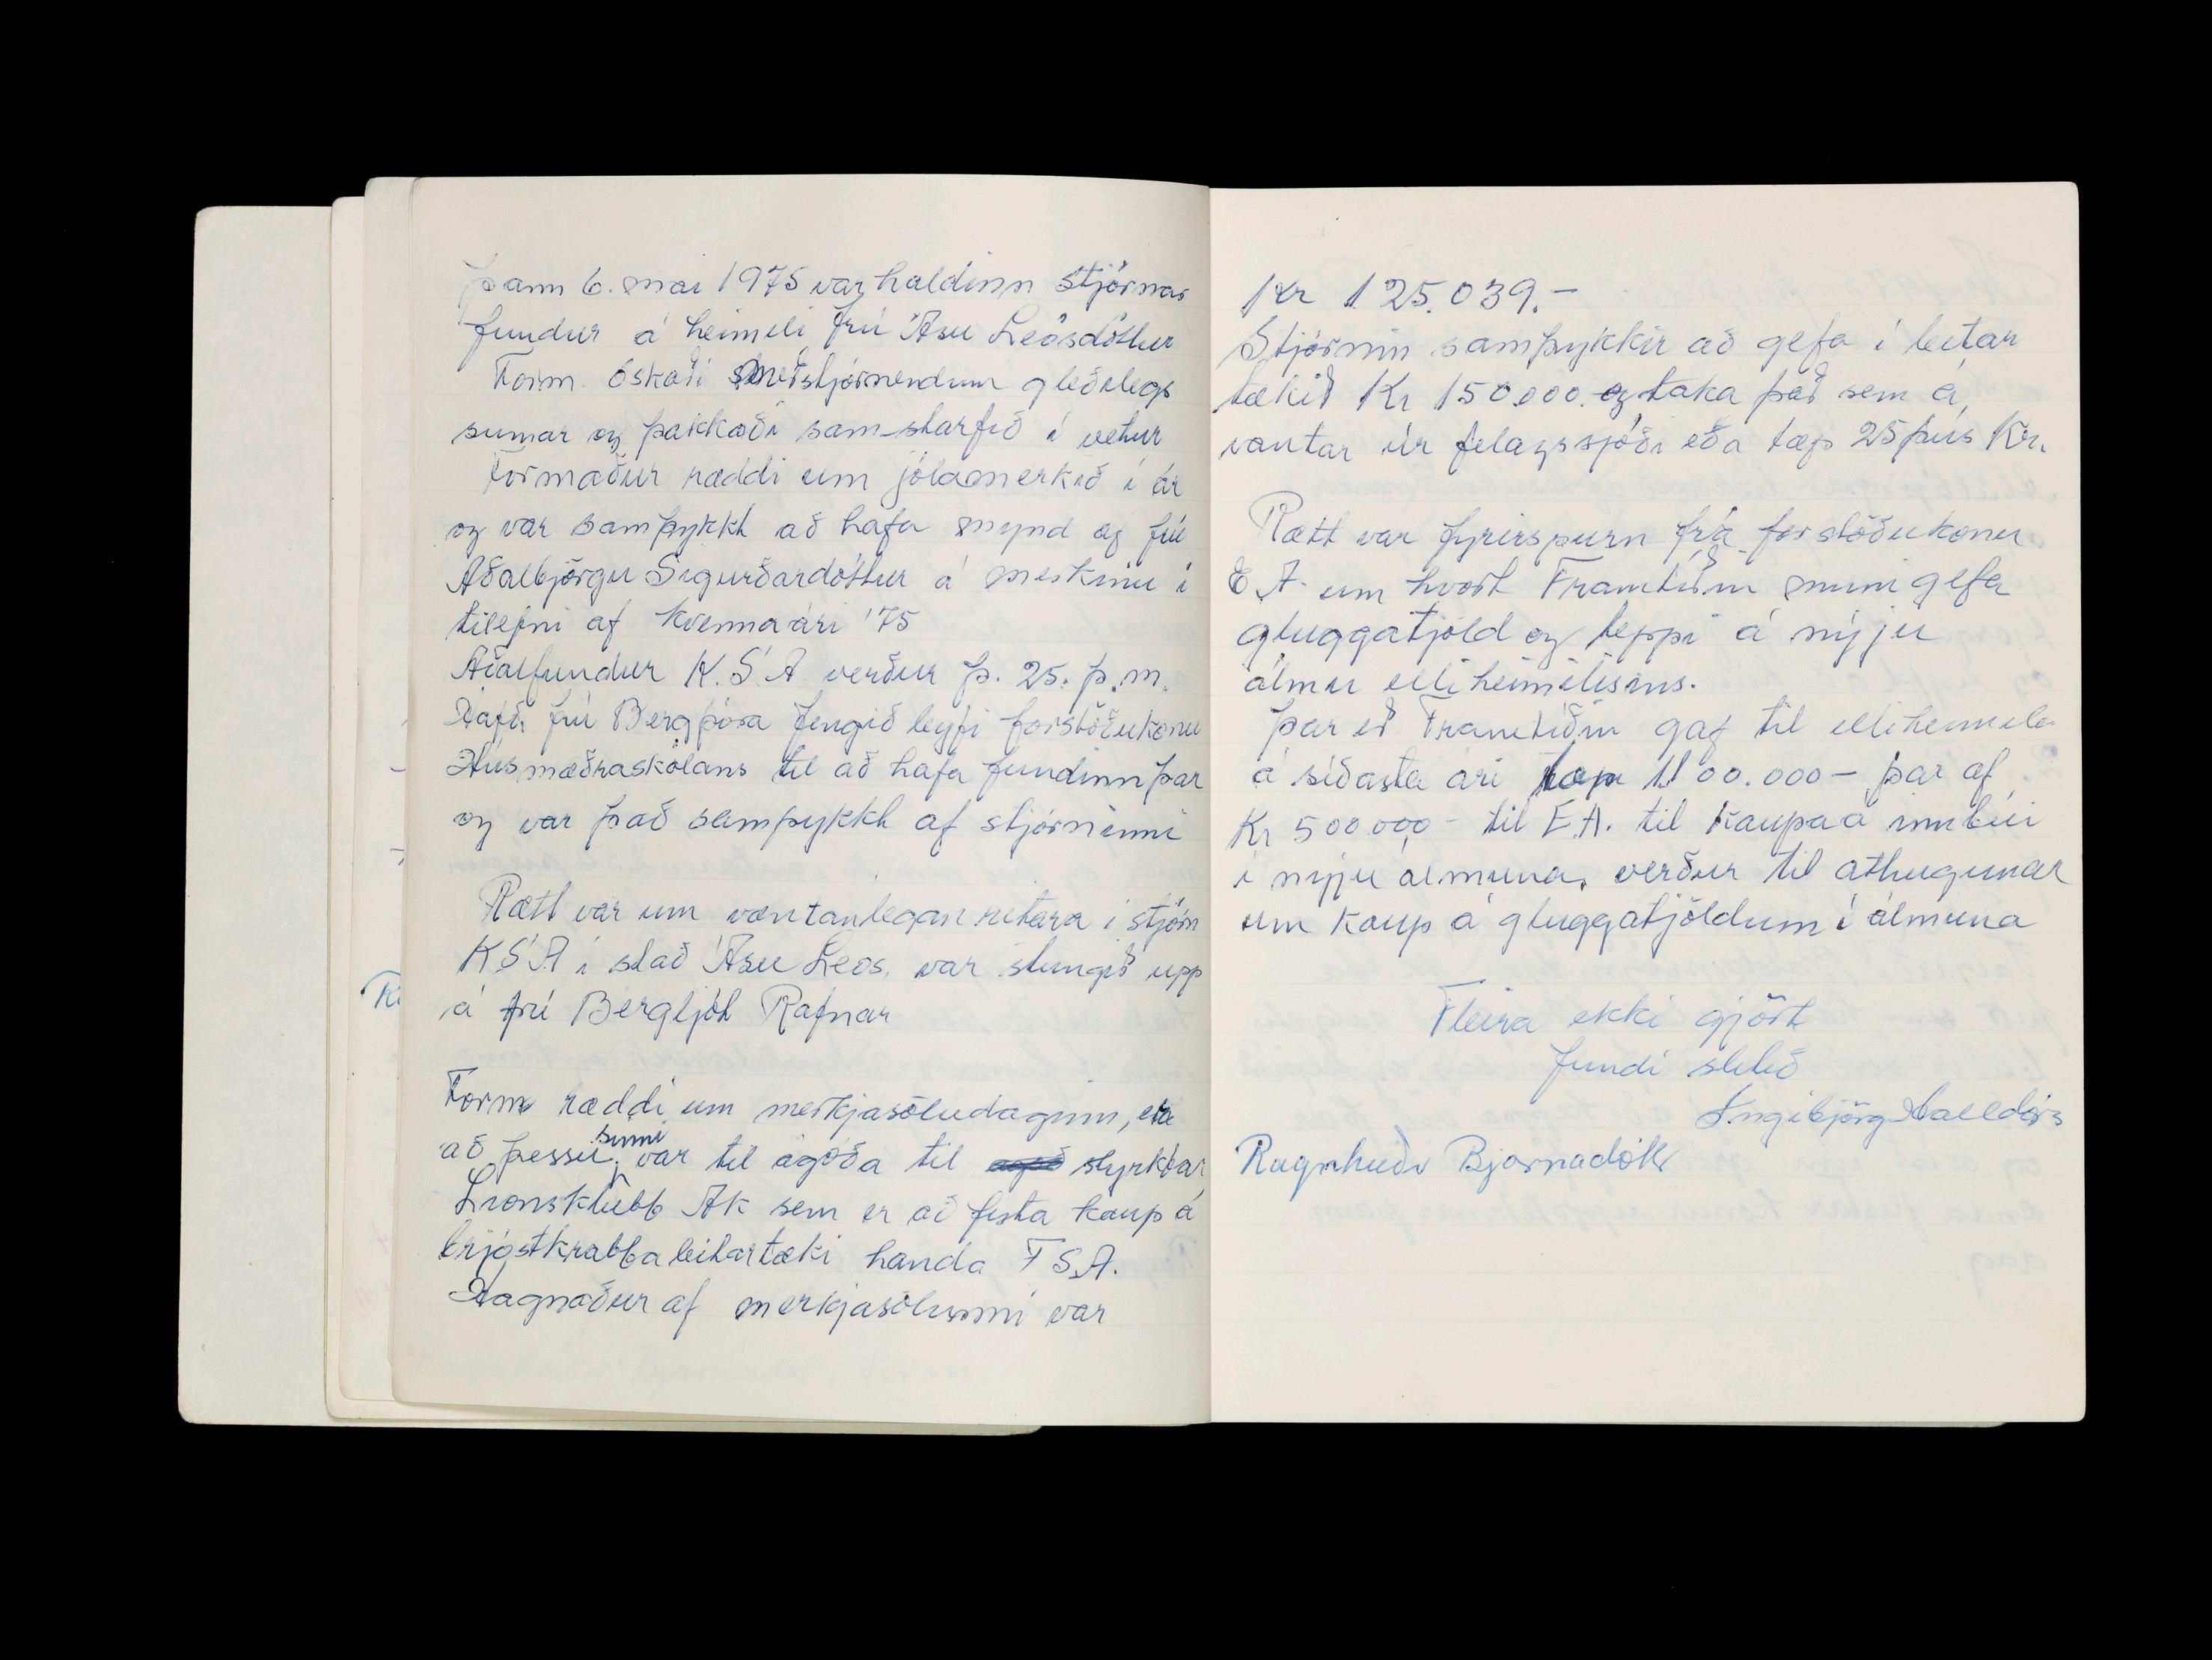 Þann 6. mai 1975 var haldinn stjórnar
fundur á heimili frú Ásu Leósdóttur
Form. óskaði meðstjórnendum gleðilegs
sumar og þakkaði sam-starfið í vetur
Formaður ræddi um jólamerkið í ár
og var samþykkt að hafa mynd af frú
Aðalbjörgu Sigurðardóttur á merkinu í
tilefni af kvennaári '75
Aðalfundur K.S.A verður þ. 25. þ.m.
Hafði frú Bergþóra fengið leyfi forstöðukonu
Húsmæðraskólans til að hafa fundinn þar
og var það samþykkt af stjórninni
Rætt var um væntanlegan ritara í stjórn
KSA í stað Ásu Leós, var stungið upp
á frú Bergljót Rafnar
Form ræddi um merkjasöludaginn, en
að þessu sinni var til ágóða til styrktar
Lionsklúbb Ak sem er að festa kaup á
brjóstkrabbaleitartæki handa FSA.
Hagnaður af merkjasölunni var
Kr 125.039.-
Stjórnin samþykkir að gefa í leitar
tækið Kr 150.000. og taka það sem á
vantar úr felagssjóði eða tæp 25 þús Kr.
Rætt var fyrirspurn frá forstöðukonu
E.A. um hvort Framtíðin muni gefa
gluggatjöld og teppi á nýju
álmu elliheimilisins.
Þar eð Framtíðin gaf til elliheimila
á síðasta ári 1100.000- þar af
Kr 500.000- til E.A. til kaupa á innbúi
í nýju álmuna, verður til athugunar
um kaup á gluggatjöldum í álmuna
Fleira ekki gjört
fundi slitið
Ingibjörg Halldórs
Ragnheiður Bjarnadóttir